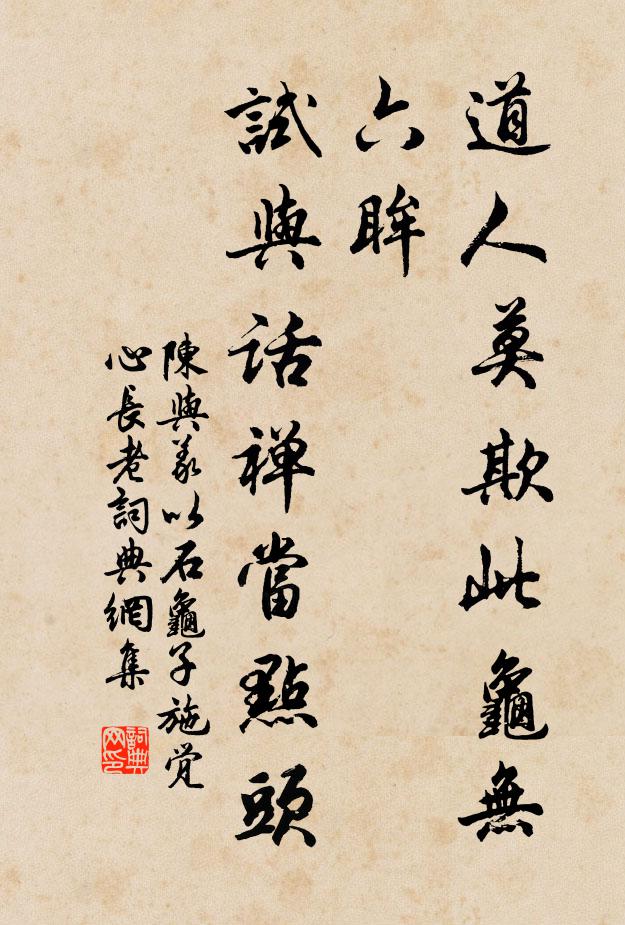 道人莫欺此龜無
六眸
試與話禅當點頭
陳與義以石龜子施覚
心長老詞典網集
詞典网印